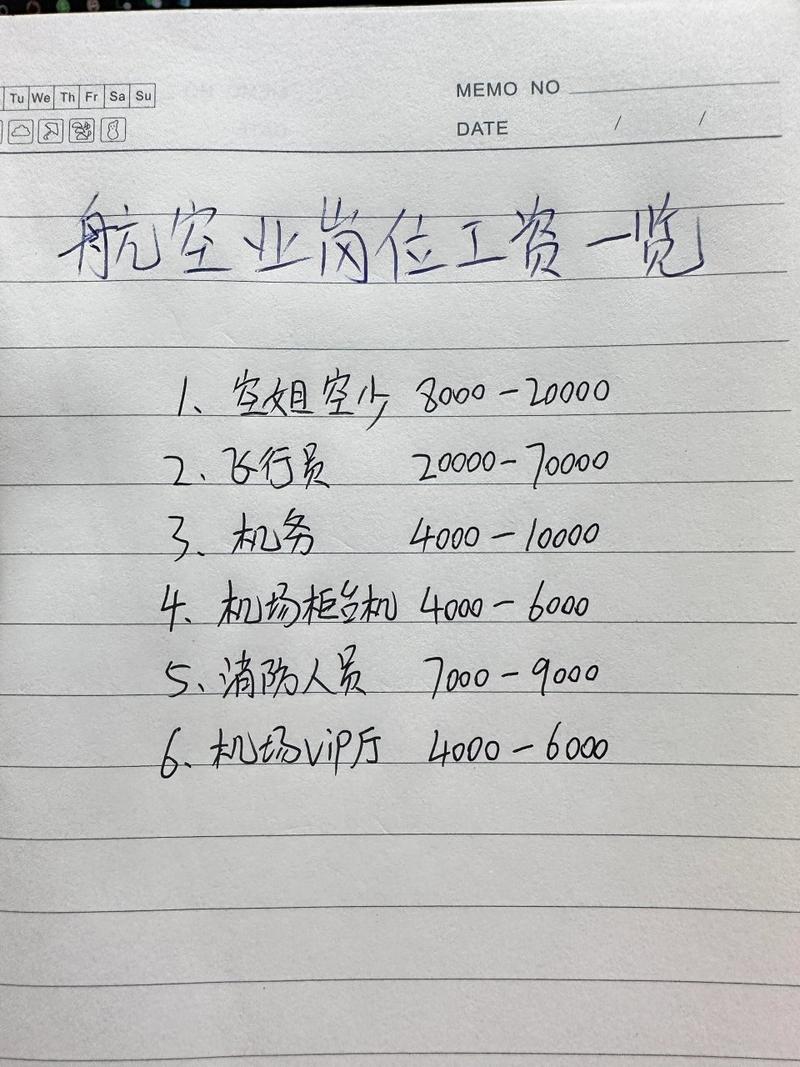 Tu We Th Fr Sa Su
MEMO NO
DATE / /
航空业岗位工资一览
1、空姐空少 8000-20000
2、飞行员 20000-70000
3、机务 4000-10000
4、机场柜台机 4000-6000
5、消防人员 7000-9000
6、机场VIP厅 4000-6000